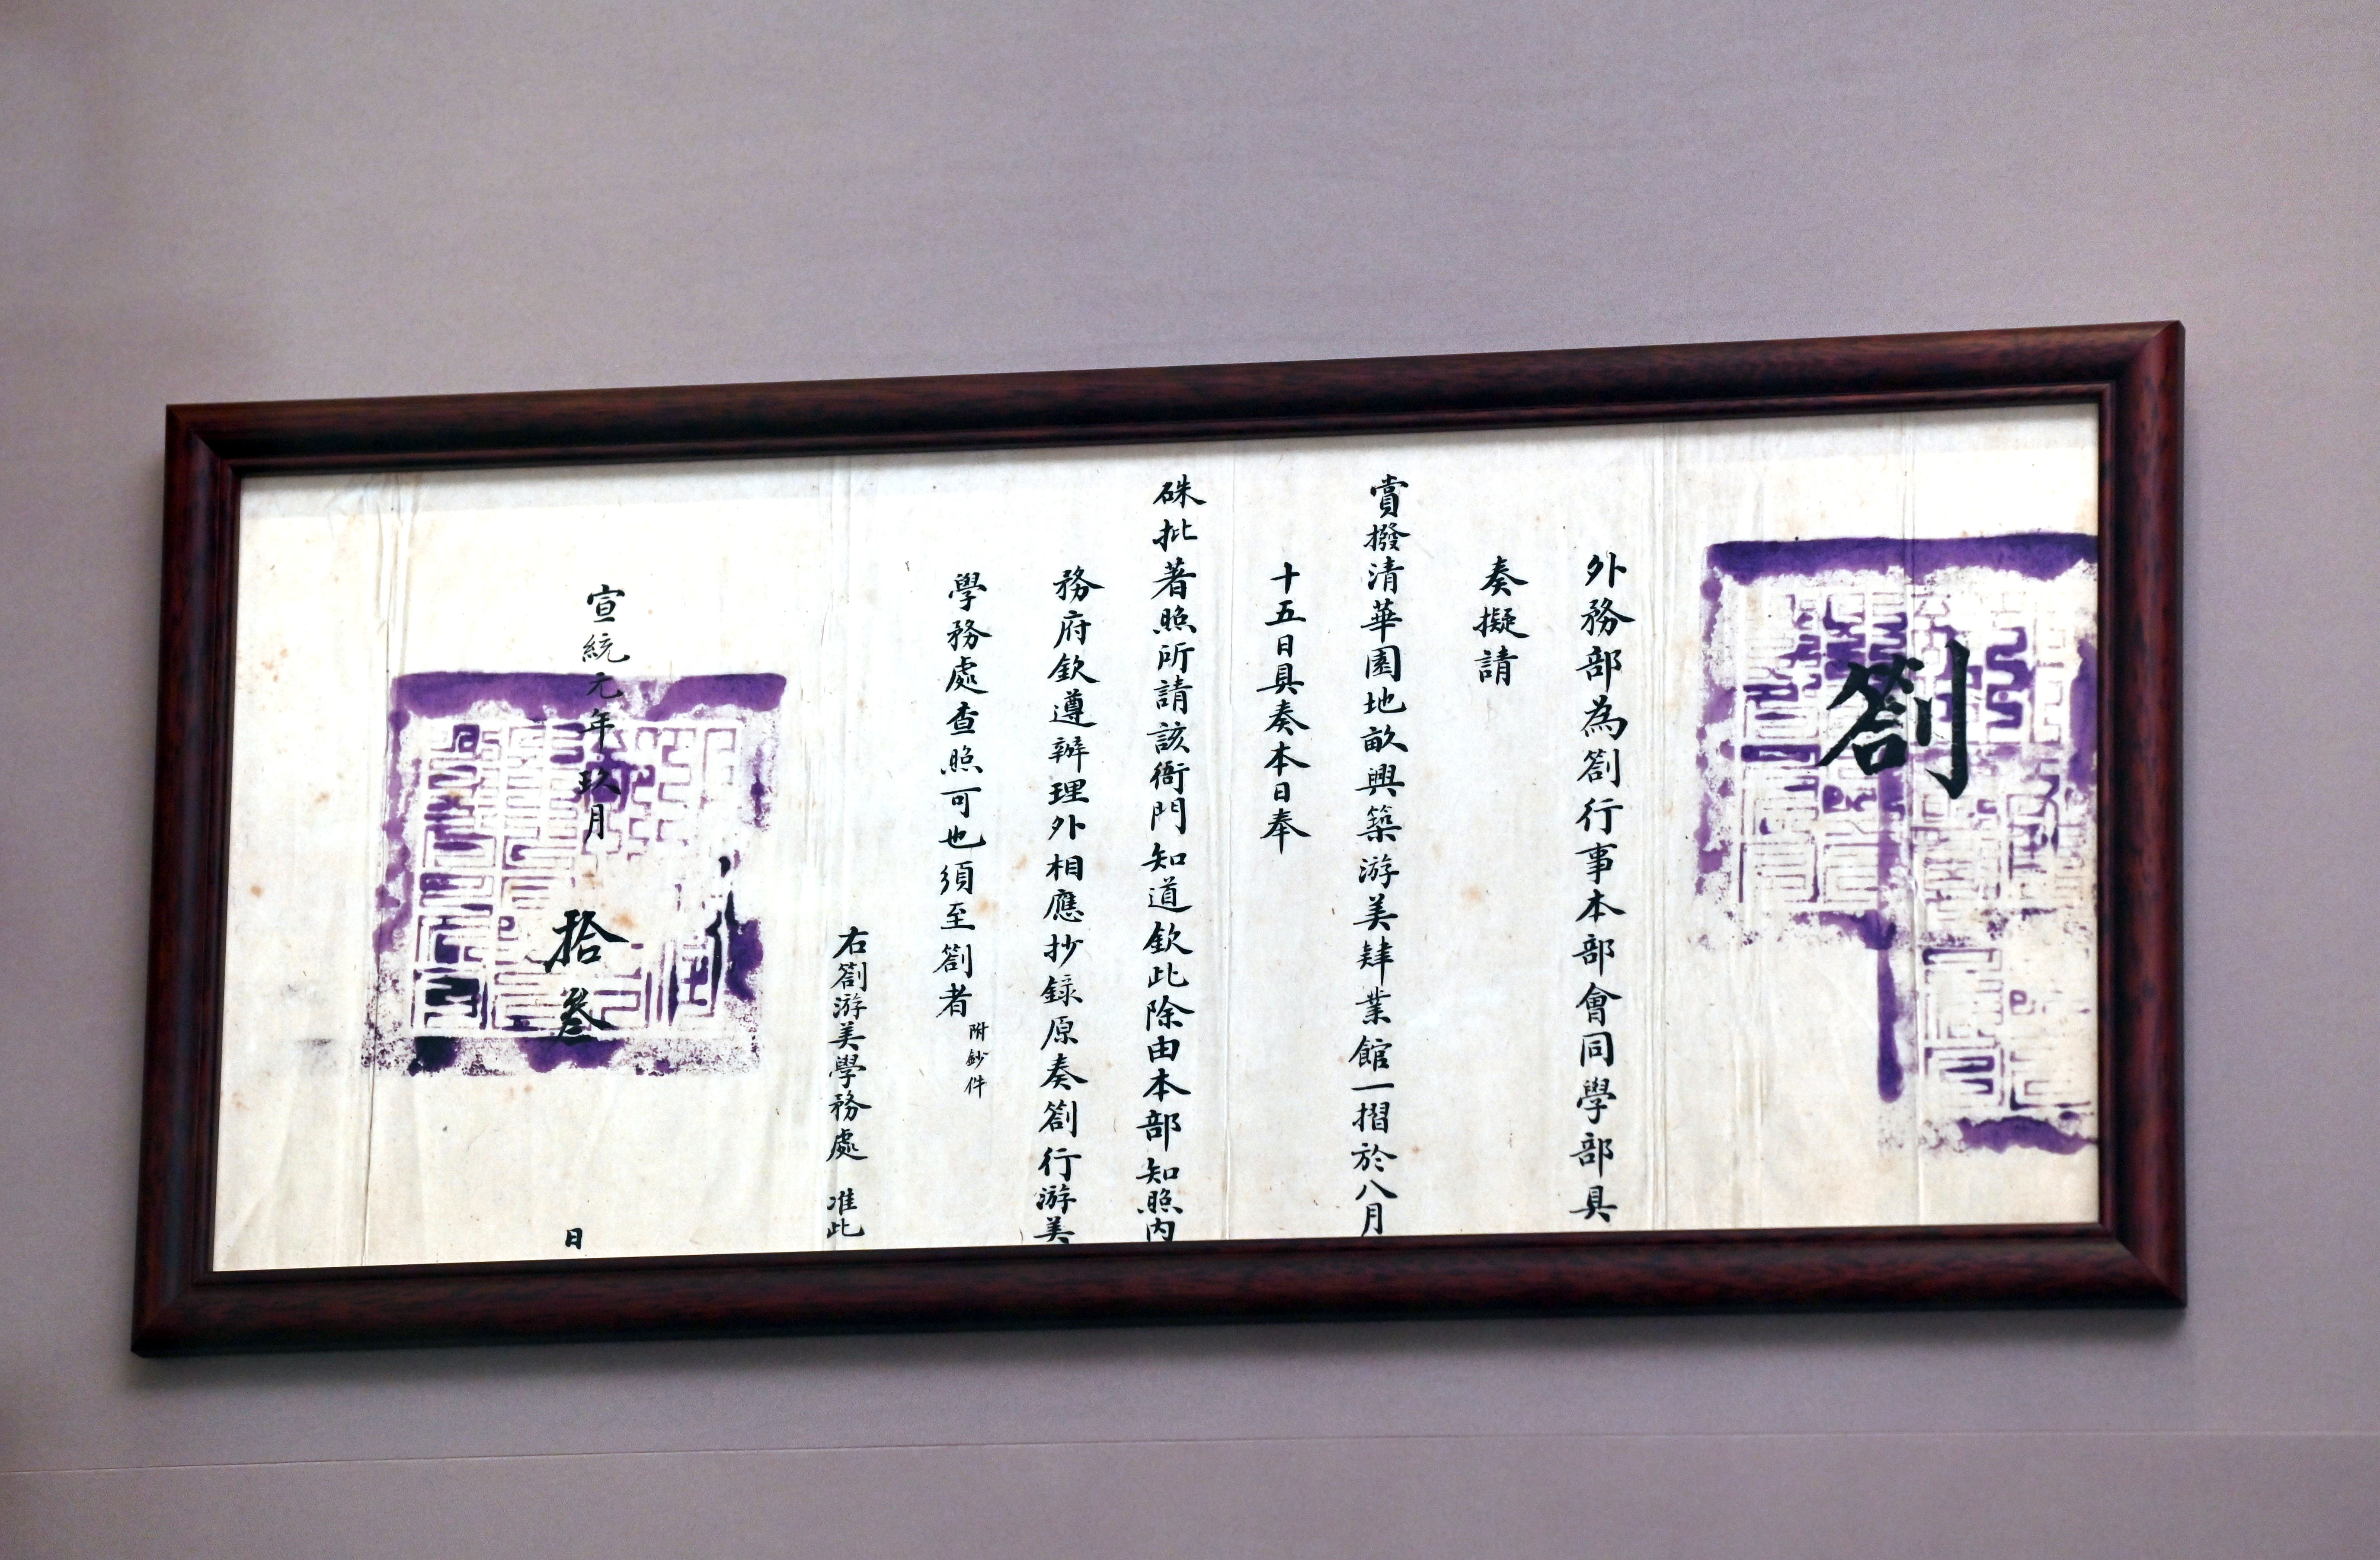 劄
外務部為劄行事本部會同學部具
奏擬請
賞撥清華園地畝興築游美肄業館一摺於八月
十五日具奏本日奉
硃批著照所請該衙門知道欽此除由本部知照內
務府欽遵辦理外相應抄錄原奏劄行游美
學務處查照可也須至劄者
附鈔件
右劄游美學務處 准此
宣統元年玖月 拾叁 日